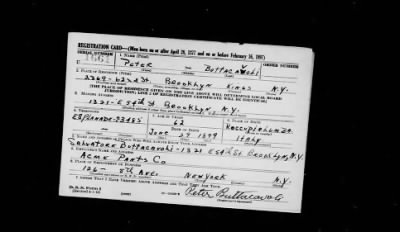 REGISTRATION CARD—(Men born on or after April 28, 1877 and on or before February 16, 1897)
SERIAL NUMBER
1661
1. NAME (Print)
ORDER NUMBER
Peter Buttacavoli
2. PLACE OF RESIDENCE (Print)
2269-62nd St Brooklyn Kings N.Y.
[THE PLACE OF RESIDENCE GIVEN ON THE LINE ABOVE WILL DETERMINE LOCAL BOARD
JURISDICTION; LINE 2 OF REGISTRATION CERTIFICATE WILL BE IDENTICAL]
3. MAILING ADDRESS
1321-E 54th St Brooklyn, N.Y.
4. TELEPHONE
5. AGE IN YEARS
6. PLACE OF BIRTH
62
DATE OF BIRTH
June 27 1879
Italy
7. NAME AND ADDRESS OF PERSON WHO WILL ALWAYS KNOW YOUR ADDRESS
Salvatore Buttacavoli-1321 E 54th St Brooklyn, N.Y.
8. EMPLOYER'S NAME AND ADDRESS
Acme Pants Co
9. PLACE OF EMPLOYMENT OR BUSINESS
126- 5th Ave. New York N.Y.
I AFFIRM THAT I HAVE VERIFIED ABOVE ANSWERS AND THAT THEY ARE TRUE.
D. S. S. Form 1
Peter Buttacavoli